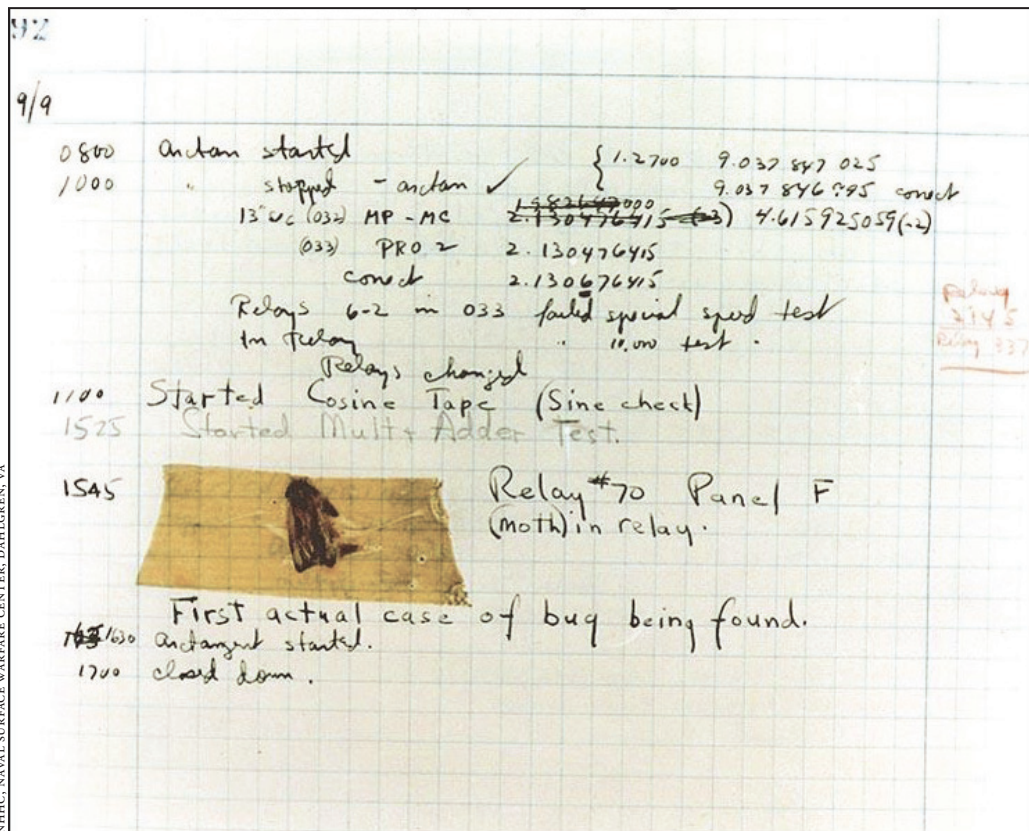 92
9/9
0800 arctan started { 1.2700 9.037 847 025
1000 " stopped - arctan ✓ 9.037 846 995 correct
13"uc (032) MP - MC 2.130476415 (-3) 4.615925059(-2)
(033) PRO 2 2.130476415
correct 2.130676415
Relays 6-2 in 033 failed special speed test
In Relay " 10,000 test .
Relays changed
Relay
2145
Relay 337
1100 Started Cosine Tape (Sine check)
1525 Started Mult + Adder Test.
1545 Relay #70 Panel F
(moth) in relay.
First actual case of bug being found.
1630 arctangent started.
1700 closed down .
NHHC, NAVAL SURFACE WARFARE CENTER, DAHLGREN, VA